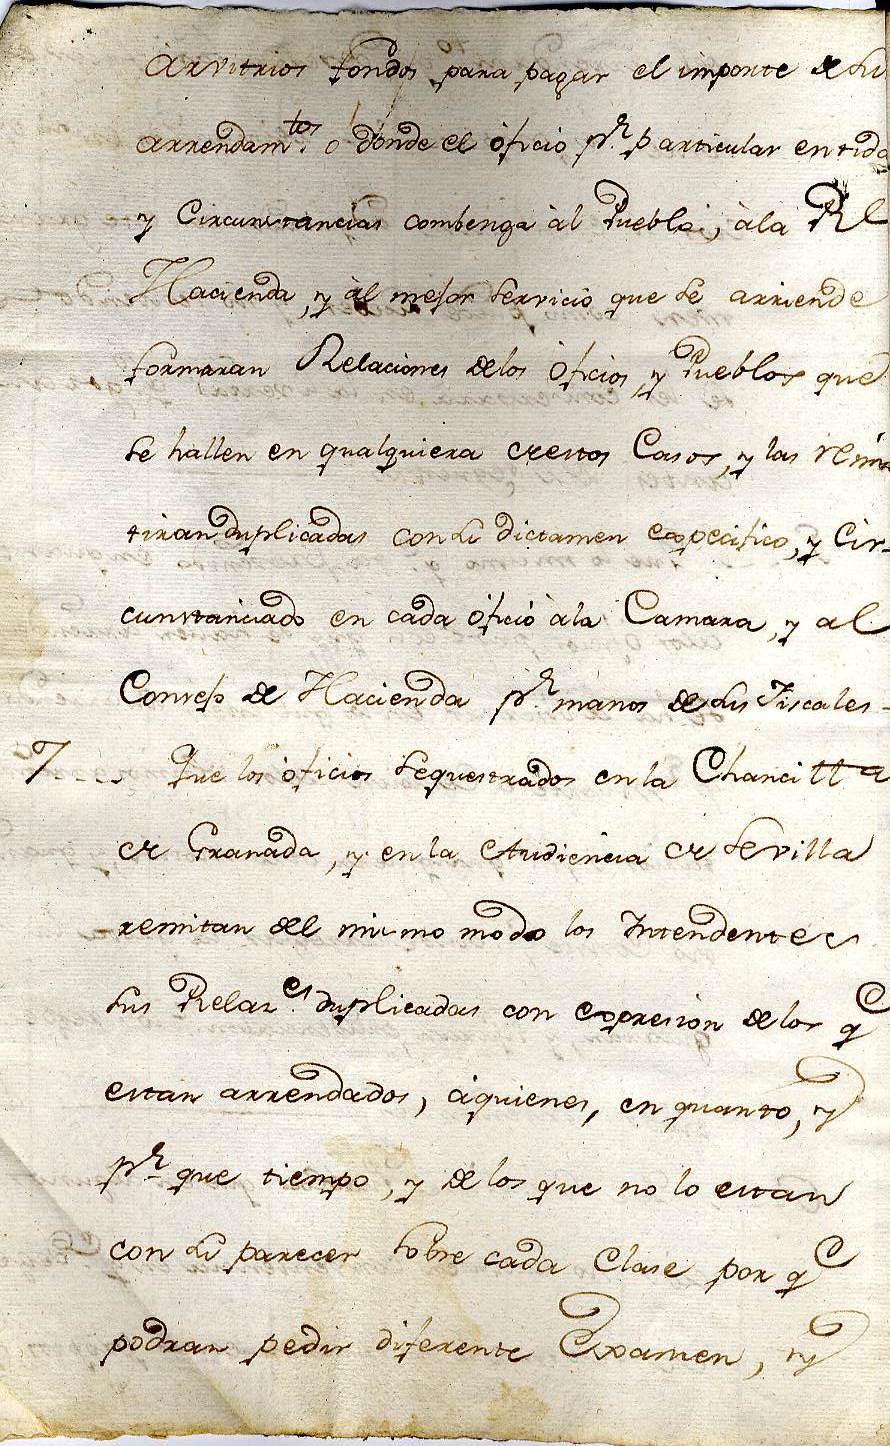 Arvitrios fondos para pagar el importe de su
arrendam.tos o donde el óficio p.r particular entida
y Circunstancias combenga àl Pueblo, àla Rl
Hacienda, y àl mejor servicio que se arriende
formaran Relaciones delos Oficios, y Pueblos que
se hallen en qualquiera destos Casos, y las remi
tiran duplicadas con su dictamen expecifico, y Cir-
cunstanciado en cada óficio àla Camara, y al
Consejo de Hacienda p.r manos de sus Fiscales-
7--- Que los óficios sequestrados en la Chancilla
de Granada, y en la Audiencia de Sevilla
remitan del mismo modo los Intendentes
sus Relac.es duplicadas con expresion delos qe
estan arrendados, áquienes, en quanto, y
p.r que tiempo, y delos que no lo estan
con su parecer sobre cada Clase por qe
podran pedir diferente Examen, y